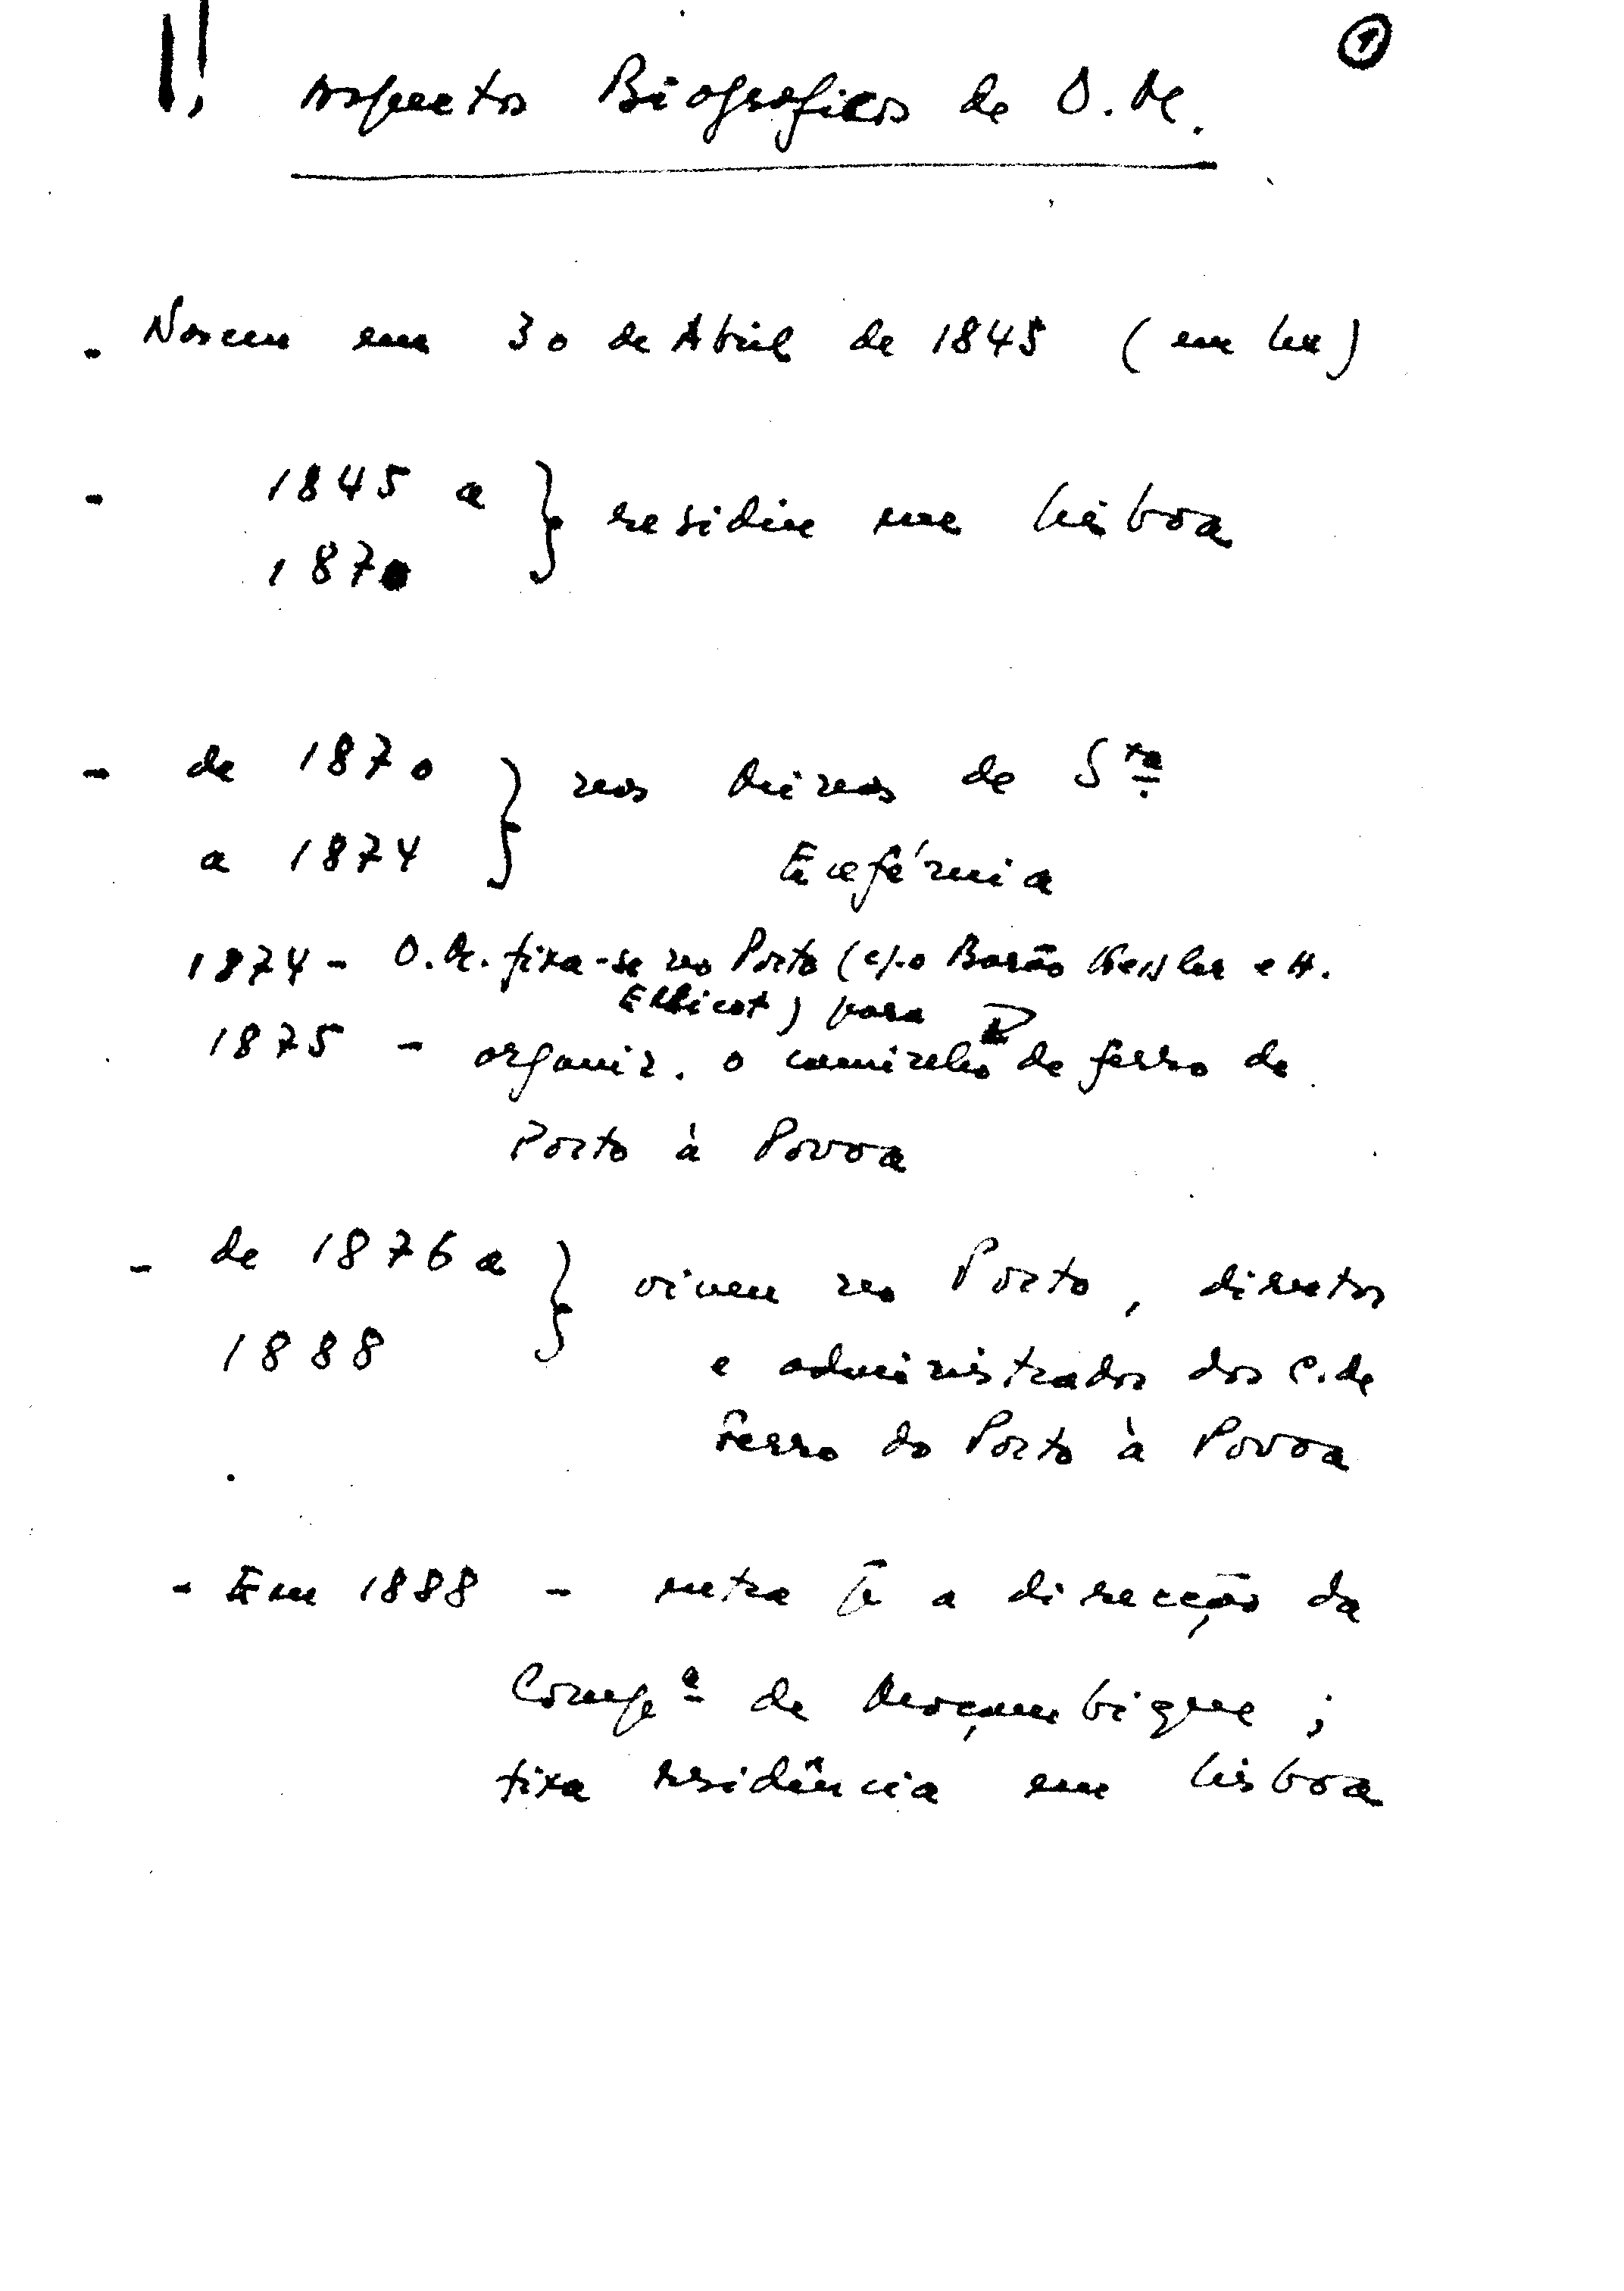 !! Aspectos Biográficos de O. M. 1
. Nasceu em 30 de Abril de 1845 (em Lx)
- 1845 a
1870 } residiu em Lisboa
- de 1870
a 1874 } nas Minas de Stª.
Eufémia
1874 - O. M. fixa-se no Porto (c/ o Barão Kessler e H.
Ellicot) para
1875 - organiz. o caminho de ferro de
Porto à Povoa
- de 1876 a
1888 } viveu no Porto, director
e administrador dos C. de
Ferro do Porto à Povoa
- Em 1888 - entra p/ a direcção da
Compª de Moçambique ;
fixa residência em Lisboa